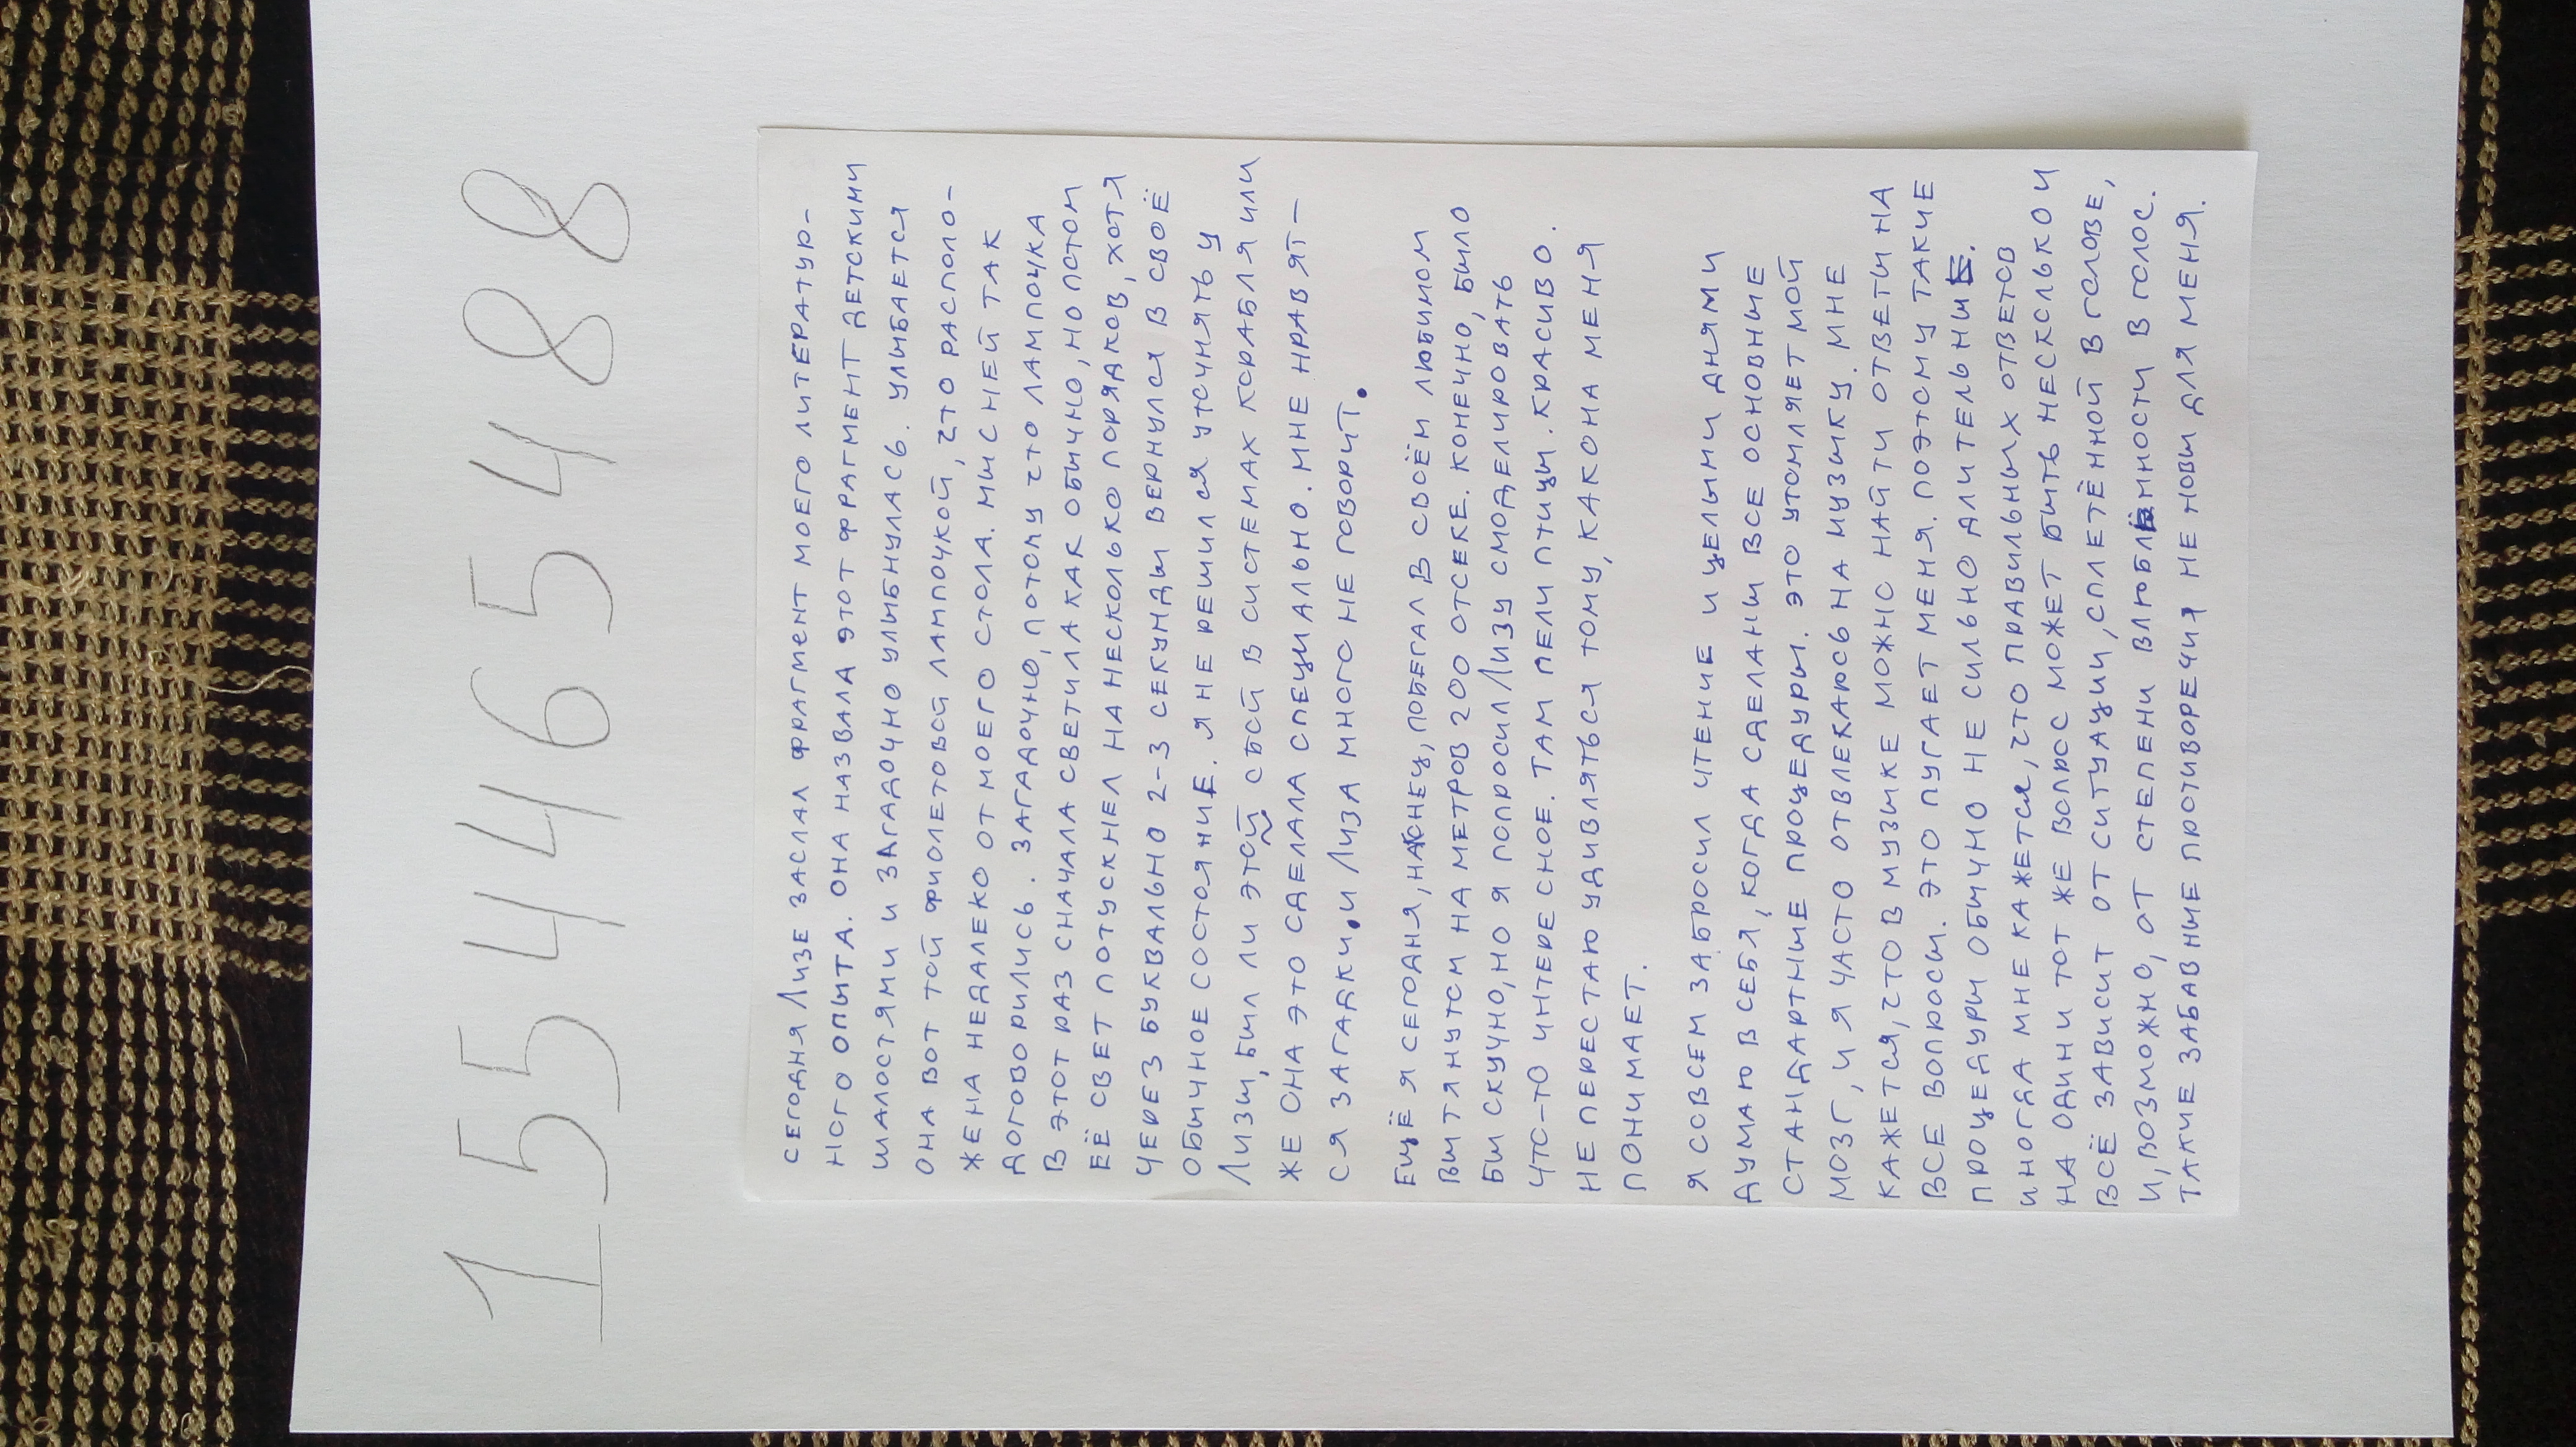 155465488
СЕГОДНЯ ЛИЗЕ ЗАСЛАЛ ФРАГМЕНТ МОЕГО ЛИТЕРАТУР-
НОГО ОПЫТА. ОНА НАЗВАЛА ЭТОТ ФРАГМЕНТ ДЕТСКИМИ
ШАЛОСТЯМИ И ЗАГАДОЧНО УЛЫБНУЛАСЬ. УЛЫБАЕТСЯ
ОНА ВОТ ТОЙ ФИОЛЕТОВОЙ ЛАМПОЧКОЙ, ЧТО РАСПОЛО-
ЖЕНА НЕДАЛЕКО ОТ МОЕГО СТОЛА. МЫ С НЕЙ ТАК
ДОГОВОРИЛИСЬ. ЗАГАДОЧНО, ПОТОМУ ЧТО ЛАМПОЧКА
В ЭТОТ РАЗ СНАЧАЛА СВЕТИЛА КАК ОБЫЧНО, НО ПОТОМ
ЕЁ СВЕТ ПОТУСКНЕЛ НА НЕСКОЛЬКО ПОРЯДКОВ, ХОТЯ
ЧЕРЕЗ БУКВАЛЬНО 2-3 СЕКУНДЫ ВЕРНУЛСЯ В СВОЁ
ОБЫЧНОЕ СОСТОЯНИЕ. Я НЕ РЕШИЛСЯ УТОЧНЯТЬ У
ЛИЗЫ, БЫЛ ЛИ ЭТОЙ СБОЙ В СИСТЕМАХ КОРАБЛЯ ИЛИ
ЖЕ ОНА ЭТО СДЕЛАЛА СПЕЦИАЛЬНО. МНЕ НРАВЯТ-
СЯ ЗАГАДКИ. И ЛИЗА МНОГО НЕ ГОВОРИТ.
ЕЩЁ Я СЕГОДНЯ, НАКОНЕЦ, ПОБЕГАЛ В СВОЁМ ЛЮБИМОМ
ВЫТЯНУТОМ НА МЕТРОВ 200 ОТСЕКЕ. КОНЕЧНО, БЫЛО
БЫ СКУЧНО, НО Я ПОПРОСИЛ ЛИЗУ СМОДЕЛИРОВАТЬ
ЧТО-ТО ИНТЕРЕСНОЕ. ТАМ ПЕЛИ ПТИЦЫ. КРАСИВО.
НЕ ПЕРЕСТАЮ УДИВЛЯТЬСЯ ТОМУ, КАК ОНА МЕНЯ
ПОНИМАЕТ.
Я СОВСЕМ ЗАБРОСИЛ ЧТЕНИЕ И ЦЕЛЫМИ ДНЯМИ
ДУМАЮ В СЕБЯ, КОГДА СДЕЛАНЫ ВСЕ ОСНОВНЫЕ
СТАНДАРТНЫЕ ПРОЦЕДУРЫ. ЭТО УТОМЛЯЕТ МОЙ
МОЗГ, И Я ЧАСТО ОТВЛЕКАЮСЬ НА МУЗЫКУ. МНЕ
КАЖЕТСЯ, ЧТО В МУЗЫКЕ МОЖНО НАЙТИ ОТВЕТЫ НА
ВСЕ ВОПРОСЫ. ЭТО ПУГАЕТ МЕНЯ. ПОЭТОМУ ТАКИЕ
ПРОЦЕДУРЫ ОБЫЧНО НЕ СИЛЬНО ДЛИТЕЛЬНЫ.
ИНОГДА МНЕ КАЖЕТСЯ, ЧТО ПРАВИЛЬНЫХ ОТВЕТОВ
НА ОДИН И ТОТ ЖЕ ВОПРОС МОЖЕТ БЫТЬ НЕСКОЛЬКО И
ВСЁ ЗАВИСИТ ОТ СИТУАЦИИ, СПЛЕТЁННОЙ В ГОЛОВЕ,
И, ВОЗМОЖНО, ОТ СТЕПЕНИ ВЛЮБЛЁННОСТИ В ГОЛОС.
ТАКИЕ ЗАБАВНЫЕ ПРОТИВОРЕЧИЯ НЕ НОВЫ ДЛЯ МЕНЯ.